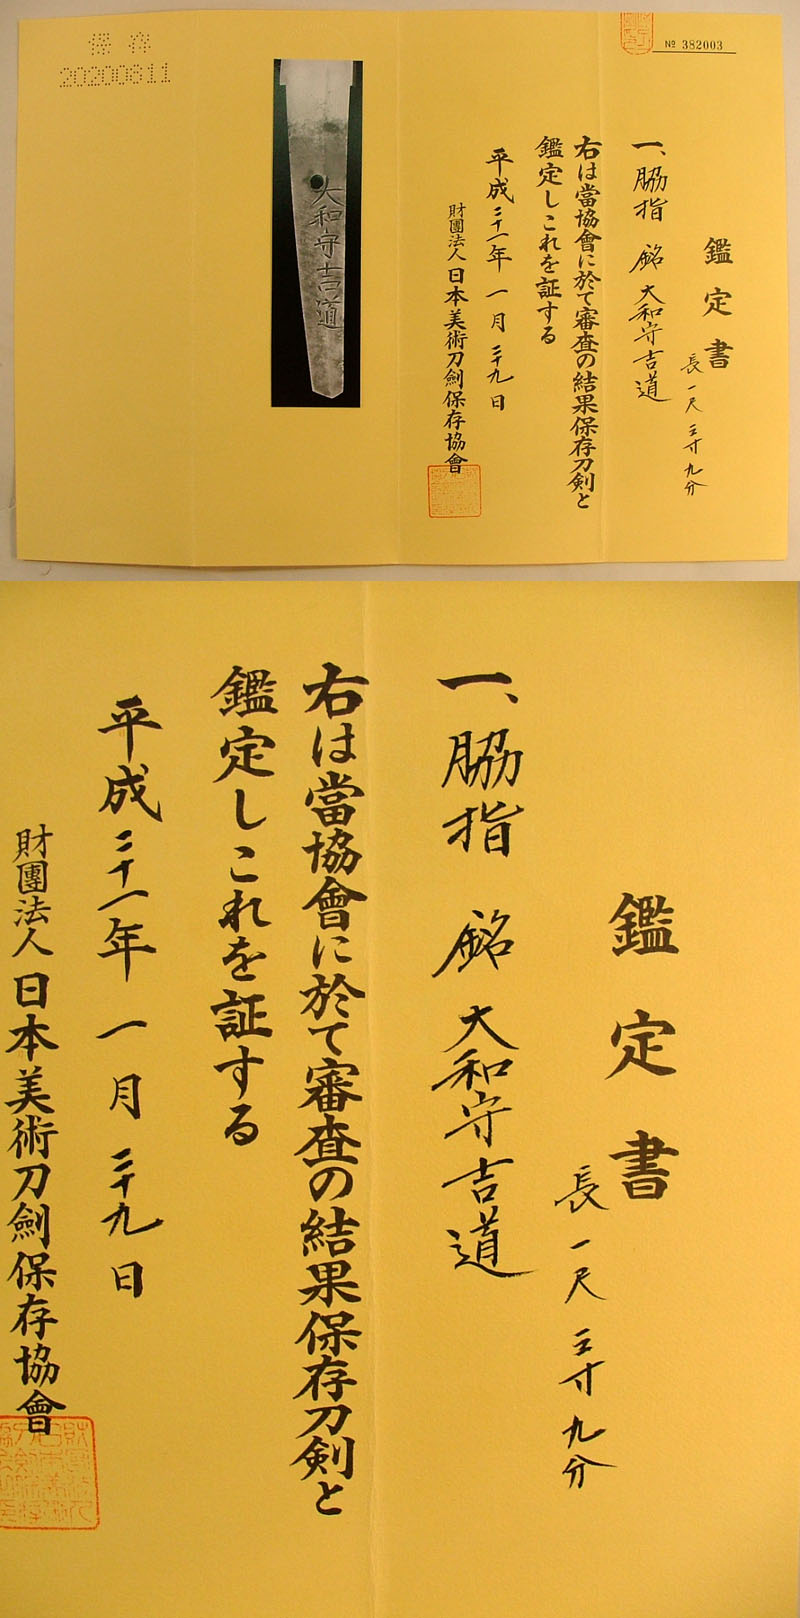 No 382003
鑑定書
長一尺三寸九分
一、脇指 銘 大和守吉道
右は當協會に於て審査の結果保存刀剣と
鑑定しこれを証する
平成二十一年 一月 二十九日
財團法人日本美術刀劍保存協會
大和守吉道
保存
20200611
鑑定書
長一尺三寸九分
一、脇指 銘 大和守吉道
右は當協會に於て審査の結果保存刀剣と
鑑定しこれを証する
平成二十一年 一月 二十九日
財團法人日本美術刀劍保存協會